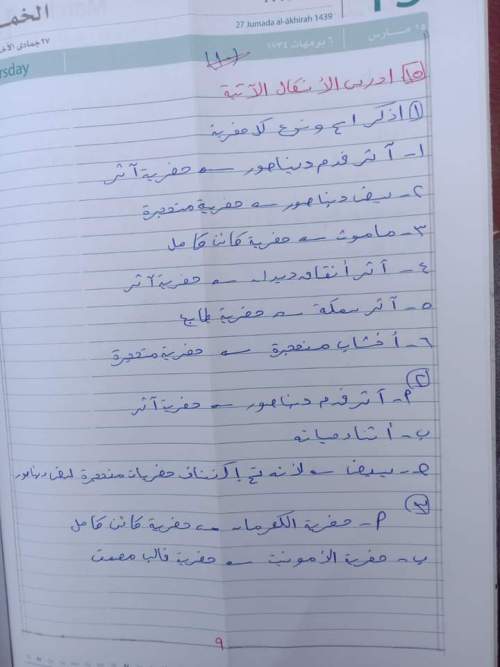 الخمـ
27 Jumada al-akhirah 1439
٢٧ جمادى الآخـ
rsday
٦ برمهات ١٧٣٤
١٥ مـارس
(١٠)
١٥ ادرس الأشكال الآتية
١ اذكر اسم ونوع كل حفرية
١- آثر قدم ديناصور ← حفرية آثر
٢- بيض ديناصور ← حفرية متحجرة
٣- ماموث ← حفرية كائن كامل
٤- آثر أنفاق ديدان ← حفرية آثر
٥- آثر سمكة ← حفرية طابع
٦- أخشاب متحجرة ← حفرية متحجرة
٢
م- آثر قدم ديناصور ← حفرية آثر
ب- أثناء حياته
ح- يبيض ← لأنه تم إكتشاف حفريات متحجرة لبيض ديناصور
٣
م- حفرية الكهرمان ← حفرية كائن كامل
ب- حفرية الأمونيت ← حفرية قالب مصمت
٩